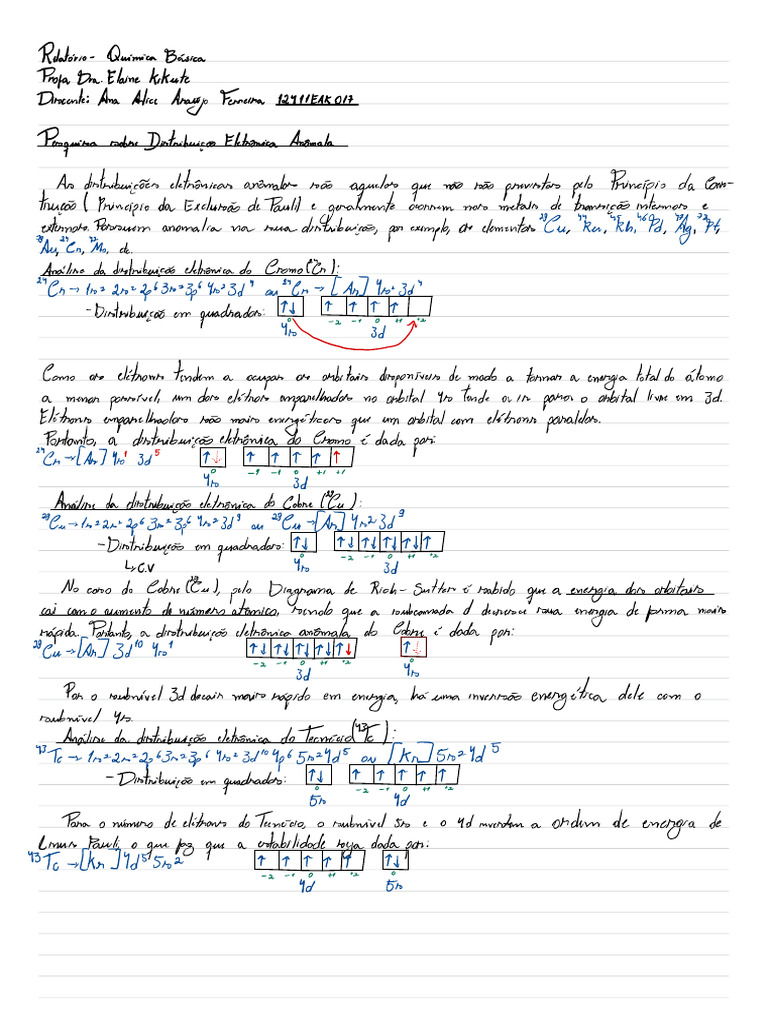 Relatório - Química Básica
Profa Dra. Elaine Kikute
Discente: Ana Alice Araújo Ferreira 12411EAK017
Pesquisa sobre Distribuição Eletrônica Anômala
As distribuições eletrônicas anômalas são aquelas que não são previstas pelo Princípio da Cons-
trução (Princípio da Exclusão de Pauli) e geralmente ocorrem nos metais de transição internos e
externos. Possuem anomalia na sua distribuição, por exemplo, os elementos ²⁹Cu, ⁴⁴Ru, ⁴⁵Rh, ⁴⁶Pd, ⁴⁷Ag, Pt,
Au, ²⁴Cr, ⁴²Mo,
Análise da distribuição eletrônica do Cromo (²⁴Cr):
²⁴Cr → 1s² 2s² 2p⁶ 3s² 3p⁶ 4s² 3d⁴ ou ²⁴Cr → [Ar] 4s² 3d⁴
- Distribuição em quadrados: ↑↓ ↑ ↑ ↑ ↑
0 -2 -1 0 +1 +2
4s 3d
Como os elétrons tendem a ocupar os orbitais disponíveis de modo a tornar a energia total do átomo
a menor possível, um dos elétrons emparelhados no orbital 4s tende a ir para o orbital livre em 3d.
Elétrons emparelhados são mais energéticos que um orbital com elétrons paralelos.
Portanto, a distribuição eletrônica do Cromo é dada por:
²⁴Cr → [Ar] 4s¹ 3d⁵ ↑↓ ↑ ↑ ↑ ↑ ↑
0 -1 0 +1 +1
4s 3d
Análise da distribuição eletrônica do Cobre (²⁹Cu):
²⁹Cu → 1s² 2s² 2p⁶ 3s² 3p⁶ 4s² 3d⁹ ou ²⁹Cu → [Ar] 4s2 3d⁹
- Distribuição em quadrados: ↑↓ ↑↓ ↑↓ ↑↓ ↑↓ ↑
↳ C.V 0 -2 -1 0 +1 +2
4s 3d
No caso do Cobre (²⁹Cu), pelo Diagrama de Rich-Sutter é sabido que a energia dos orbitais
cai com o aumento do número atômico, sendo que a subcamada d decresce sua energia de forma mais
rápida. Portanto, a distribuição eletrônica anômala do Cobre é dada por:
²⁹Cu → [Ar] 3d¹⁰ 4s¹ ↑↓ ↑↓ ↑↓ ↑↓ ↑↓ ↑↓
-2 -1 0 +1 +2 0
3d 4s
Por o subnível 3d decair mais rápido em energia, há uma inversão energética dele com o
subnível 4s.
Análise da distribuição eletrônica do Tecnécio (⁴³Tc):
⁴³Tc → 1s² 2s² 2p⁶ 3s² 3p⁶ 4s² 3d¹⁰ 4p⁶ 5s² 4d⁵ ou [Kr] 5s² 4d⁵
- Distribuição em quadrados: ↑↓ ↑ ↑ ↑ ↑ ↑
0 -2 -1 0 +1 +2
5s 4d
Para o número de elétrons do Tecnécio, o subnível 5s e o 4d invertem a ordem de energia de
Linus Pauli, o que faz que a estabilidade seja dada por:
⁴³Tc → [Kr] 4d⁵ 5s2 ↑ ↑ ↑ ↑ ↑ ↑↓
-2 -1 0 +1 +2 0
4d 5s